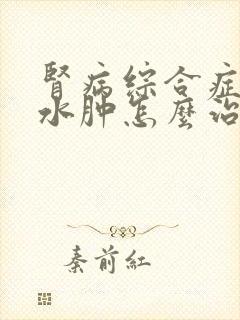 腎病綜合症
水肿怎麼治
秦前紅